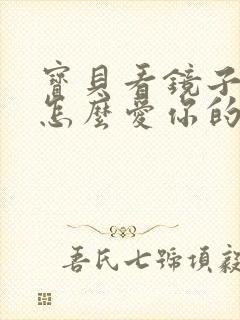 寶貝看鏡子
怎麼愛你的
吾氏七號項毅